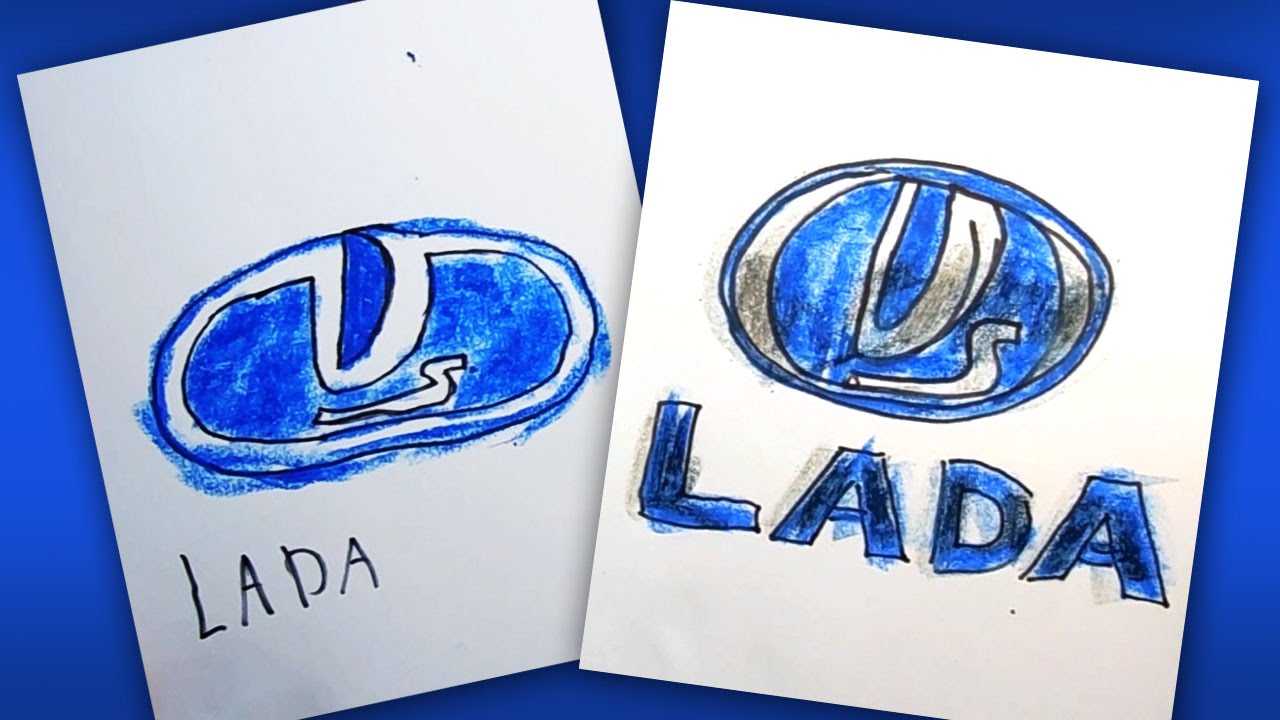 LADA
LADA